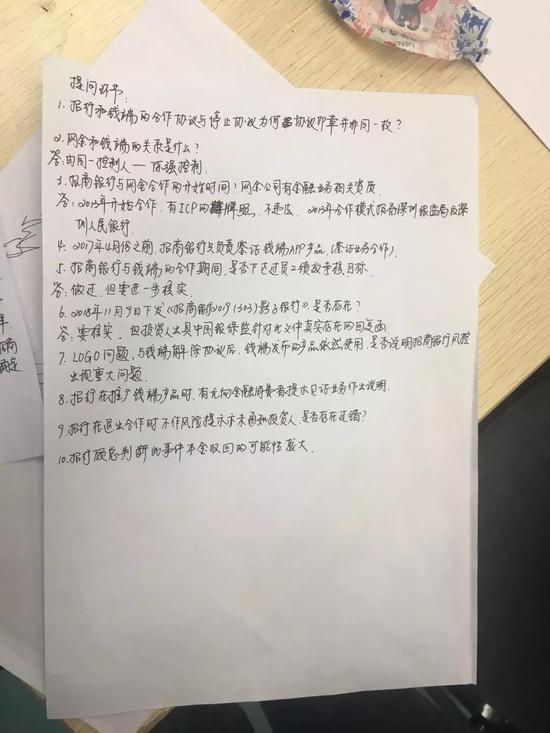 提问环节:
1. 招行和钱端的合作协议与停止协议为何协议印章并非同一枚?
2. 网金和钱端的关系是什么?
答:由同一控制人——陈强控制.
3. 招商银行与网金合作的开始时间?网金公司有金融业务相关资质.
答:2013年开始合作.有ICP的牌照,不违反.2013年合作模式报备深圳银监局及深
圳人民银行.
4. 2017年4月份之前.招商银行只负责鉴证钱端APP产品.(鉴证业务合作).
5. 招商银行与钱端的合作期间,是否下达过员工绩效考核目标.
答:做过,但要进一步核实.
6. 2018年11月9日下发《招商银行2019(303)影子银行》是否存在?
答:要核实.但投资人出具中国银保监针对此文件真实存在的回复函.
7. LOGO问题,与钱端解除协议后.钱端发布的产品依然使用.是否说明招商银行风控
出现重大问题.
8. 招行在推广钱端产品时.有无向金融消费者提示见证业务作出说明.
9. 招行在退出合作时不作风险提示亦未通知投资人.是否存在过错?
10. 招行顾总判断此事件本金收回的可能性蛮大.